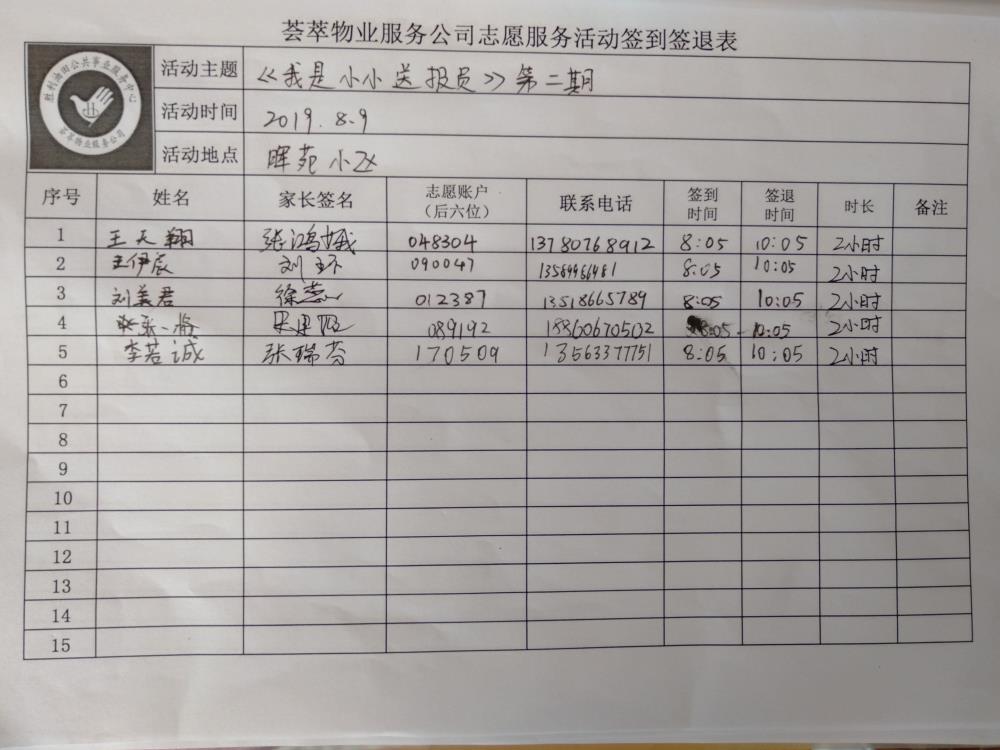 荟萃物业服务公司志愿服务活动签到签退表
胜利油田公共事业服务中心
荟萃物业服务公司
活动主题 《我是小小送报员》第二期
活动时间 2019.8.9
活动地点 晖苑小区
序号 姓名 家长签名 志愿账户（后六位） 联系电话 签到时间 签退时间 时长 备注
1 王天翔 张鸿娥 048304 13780768912 8:05 10:05 2小时
2 王伊辰 刘环 090047 13589966481 8:05 10:05 2小时
3 刘美君 徐蕊 012387 13518665789 8:05 10:05 2小时
4 089192 18860670502 8:05 10:05 2小时
5 李若诚 张瑞芬 170509 13563377751 8:05 10:05 2小时
6
7
8
9
10
11
12
13
14
15